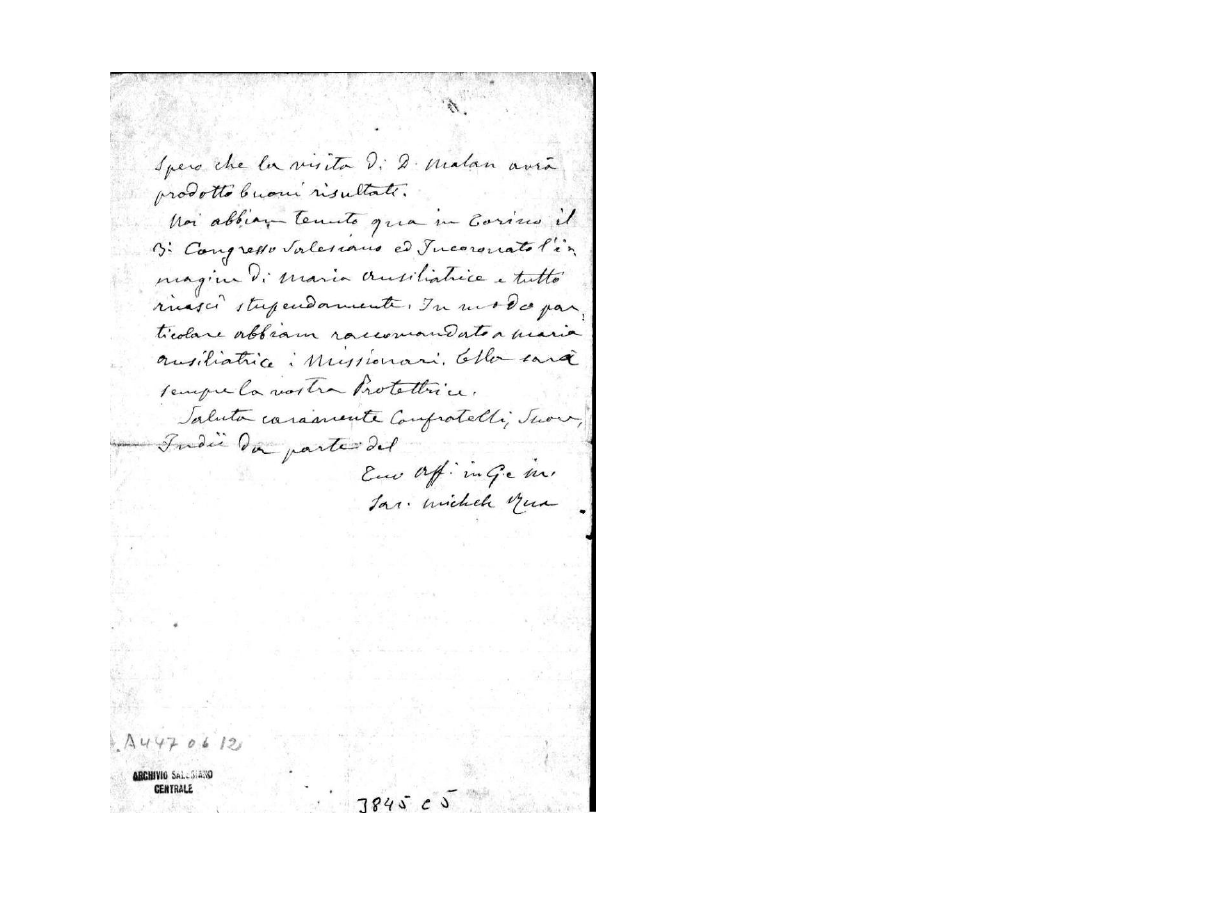 Spero che la visita di D. Malan avrà
prodotto buoni risultati.
Noi abbiam tenuto qua in Torino il
3º Congresso Salesiano ed Incoronato l'im
magine di Maria Ausiliatrice e tutto
riuscì stupendamente. In modo par
ticolare abbiam raccomandato a Maria
Ausiliatrice i Missionari. Ella sarà
sempre la vostra Protettrice.
Saluta caramente Confratelli, Suore,
Indii da parte del
Tuo Aff. in G e M.
Sac. Michele Rua
A447 06 12
ARCHIVIO SALESIANO
CENTRALE
3845 c 5